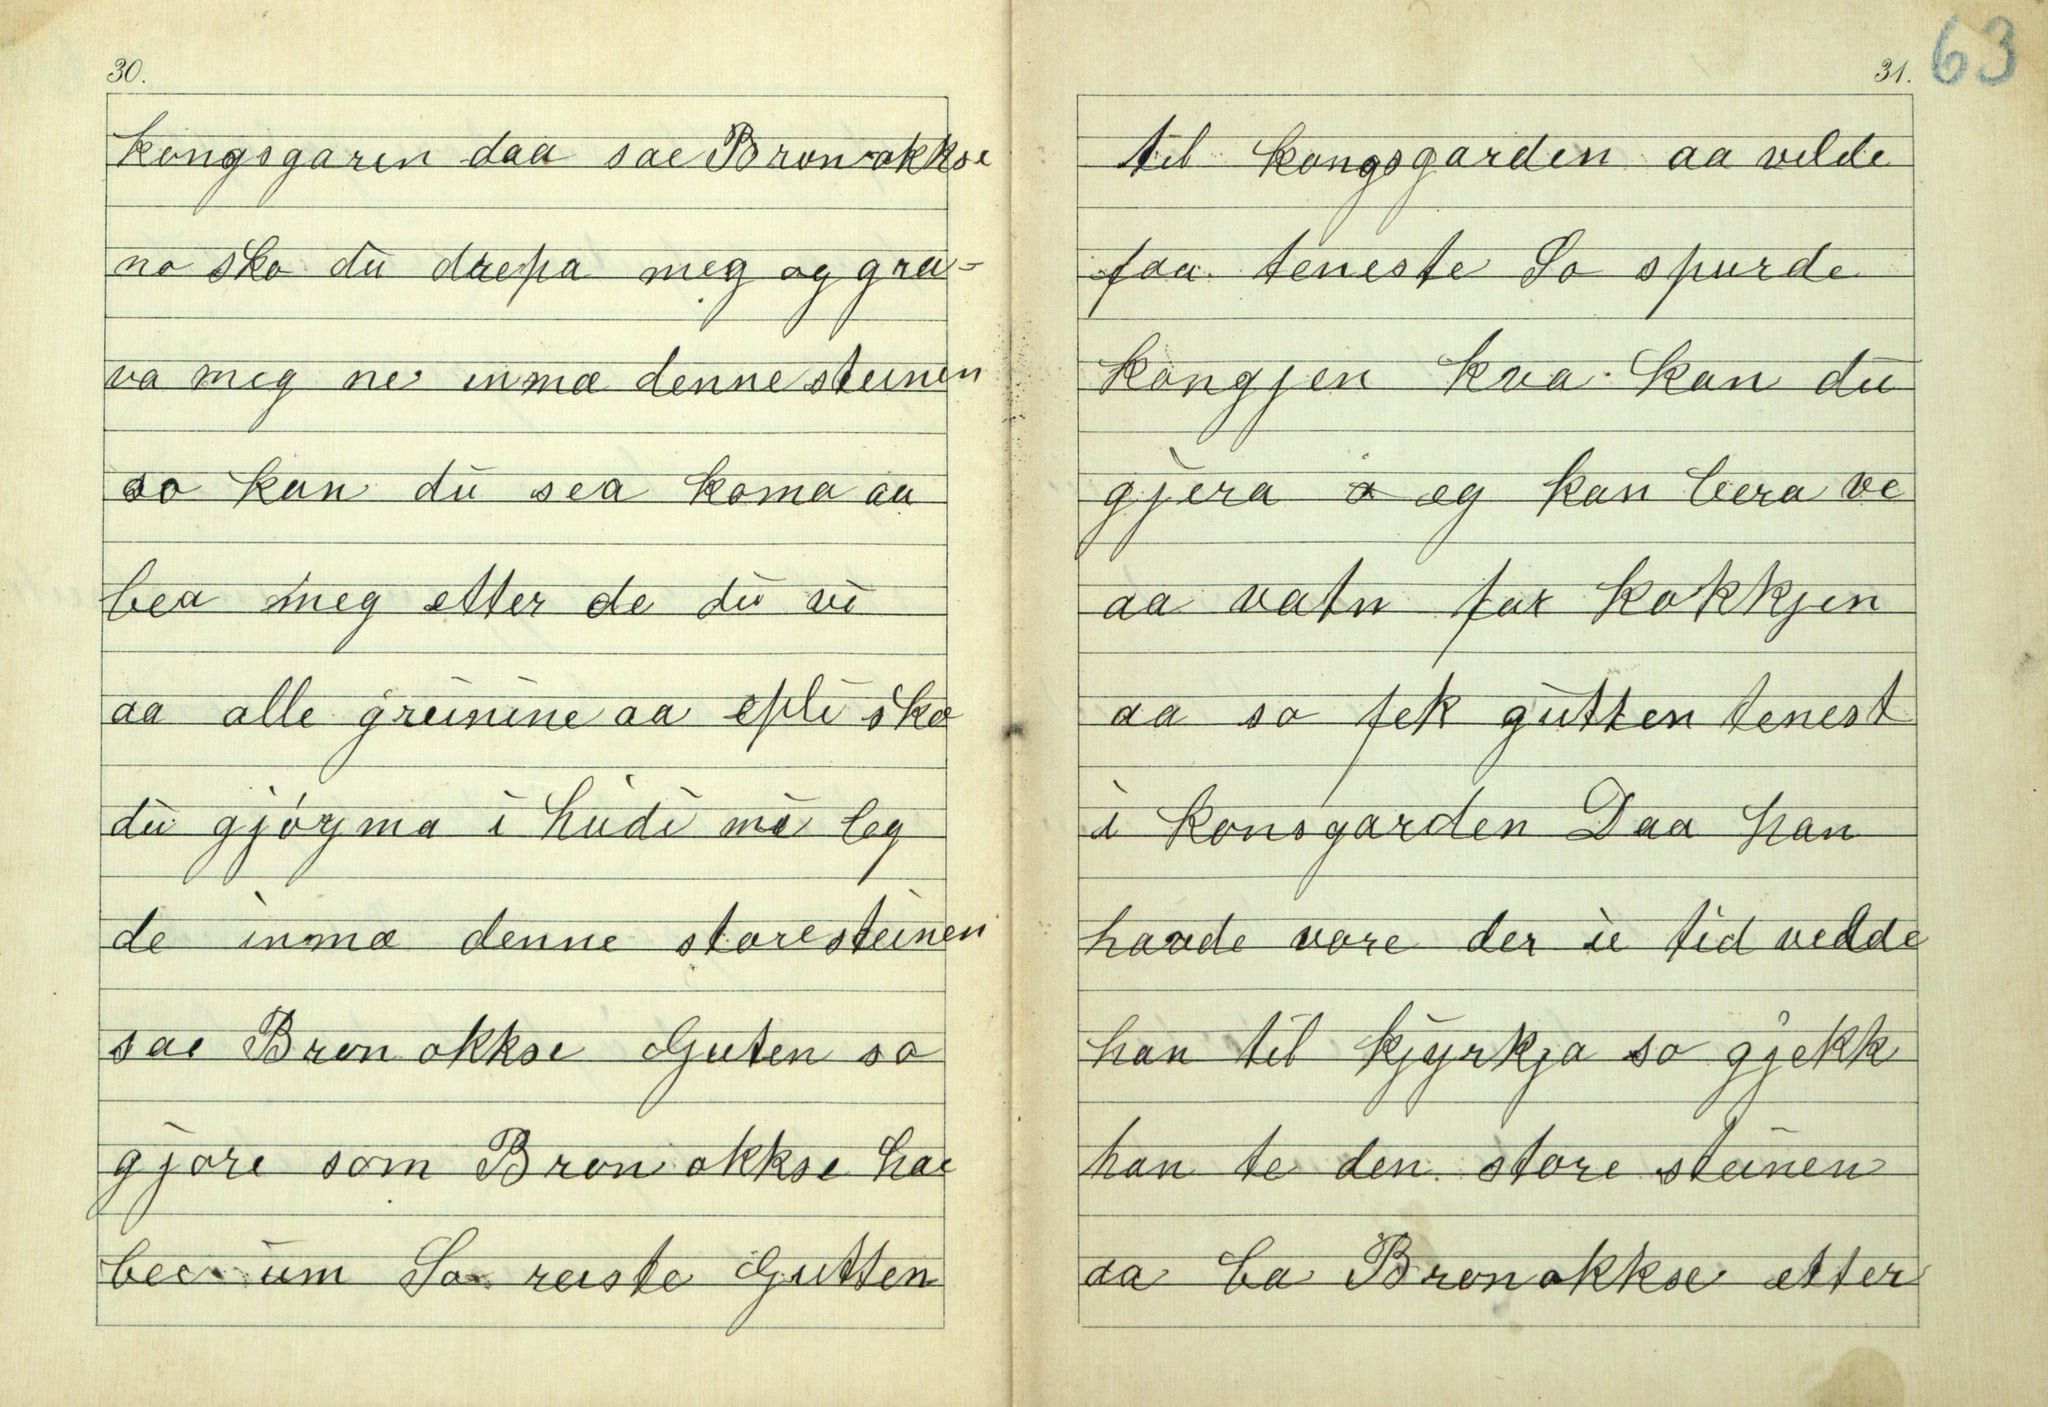 30.
kongsgaren daa sae Bronokkse
no sko du drepa meg og gra-
va meg ne inmæ denne steinen
so kan du sea koma aa
bea meg etter de du vi
aa alle greinine aa epli sko
du gjøyma i hudi mi leg
de inmæ denne storesteinen
sae Bron okkse Guten so
gjore som Bron okkse hae
bee um So reiste Gutten
31.
63
til kongsgarden aa vilde
faa teneste So spurde
kongjen kva kan du
gjera o eg kan bera ve
aa vatn for kokkjen
aa so fek gutten tenest
i konsgarden Daa han
havde vore der ie tid vedlde
han til kjyrkja so gjekk
han te den store steinen
aa ba Bronokkse etter